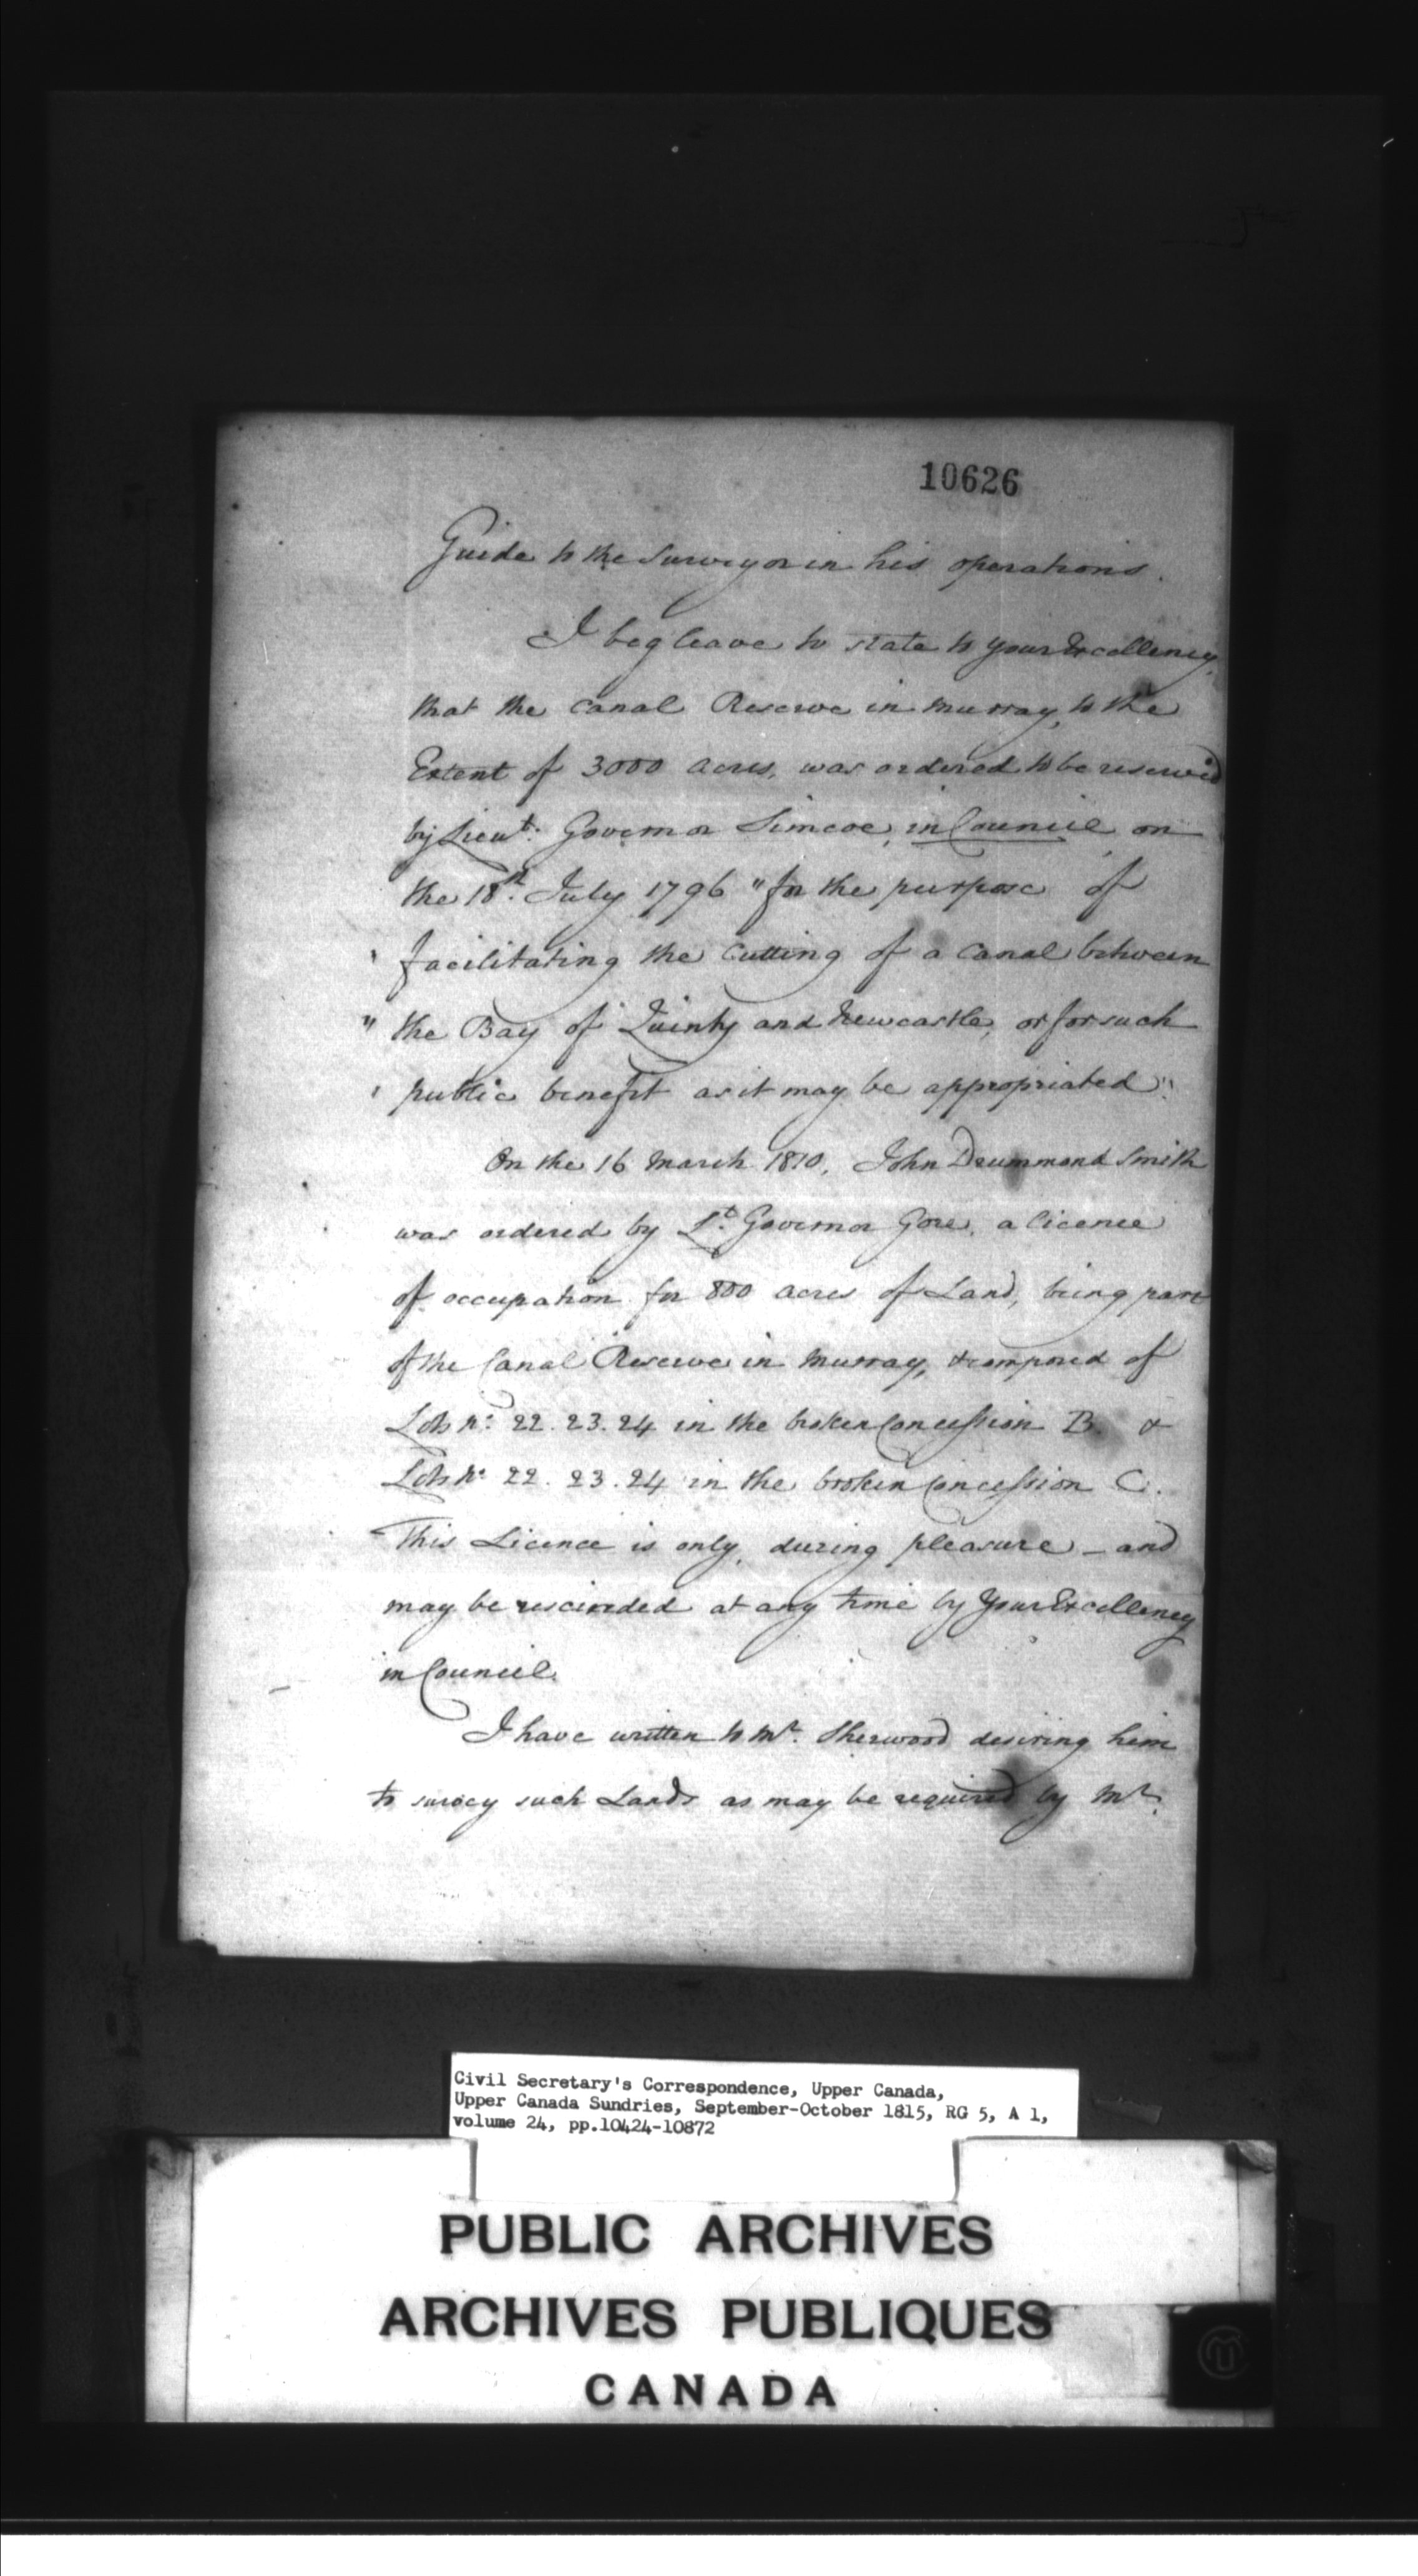 10626
Guide to the Surveyor in his operations.
I beg leave to state to your Excellency,
that the Canal Reserve in Murray, to the
Extent of 3000 acres, was ordered to be reserved
by Lieut. Governor Simcoe, in Council, on
the 18th. July 1796 "for the purpose of
' facilitating the Cutting of a Canal between
" the Bay of Quinty and Newcastle, or for such
' public benefit as it may be appropriated".
On the 16 March 1810, John Drummond Smith
was ordered by Lt. Governor Gore, a licence
of occupation for 800 acres of Land, being part
of the Canal Reserve in Murray, & composed of
Lots No. 22. 23. 24 in the broken Concession B. &
Lots No. 22. 23. 24 in the broken Concession C.
This Licence is only, during pleasure - and
may be rescinded at any time by Your Excellency
in Council.
I have written to Mr. Sherwood desiring him
to survey such Lands as may be required by Mr.
Civil Secretary's Correspondence, Upper Canada,
Upper Canada Sundries, September-October 1815, RG 5, A 1,
volume 24, pp.10424-10872
PUBLIC ARCHIVES
ARCHIVES PUBLIQUES
CANADA